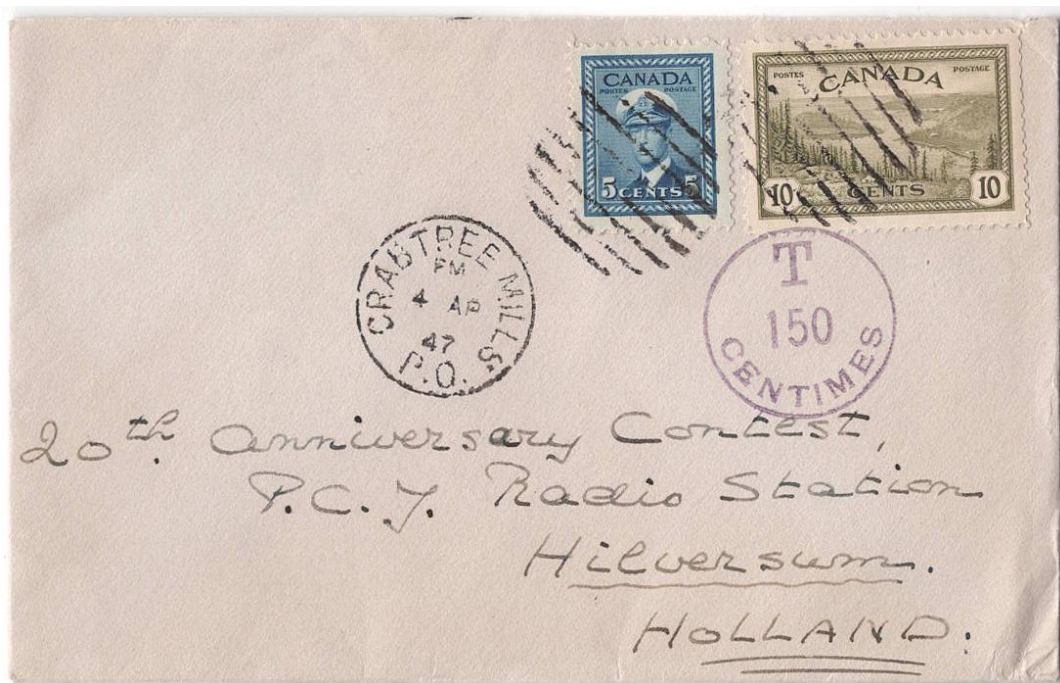 CANADA
POSTES POSTAGE
5 CENTS 5
POSTES CANADA POSTAGE
10 CENTS 10
CRABTREE MILLS
PM
4 AP
47
P.Q.
T
150
CENTIMES
20th. Anniversary Contest,
P.C.J. Radio Station
Hilversum.
HOLLAND.